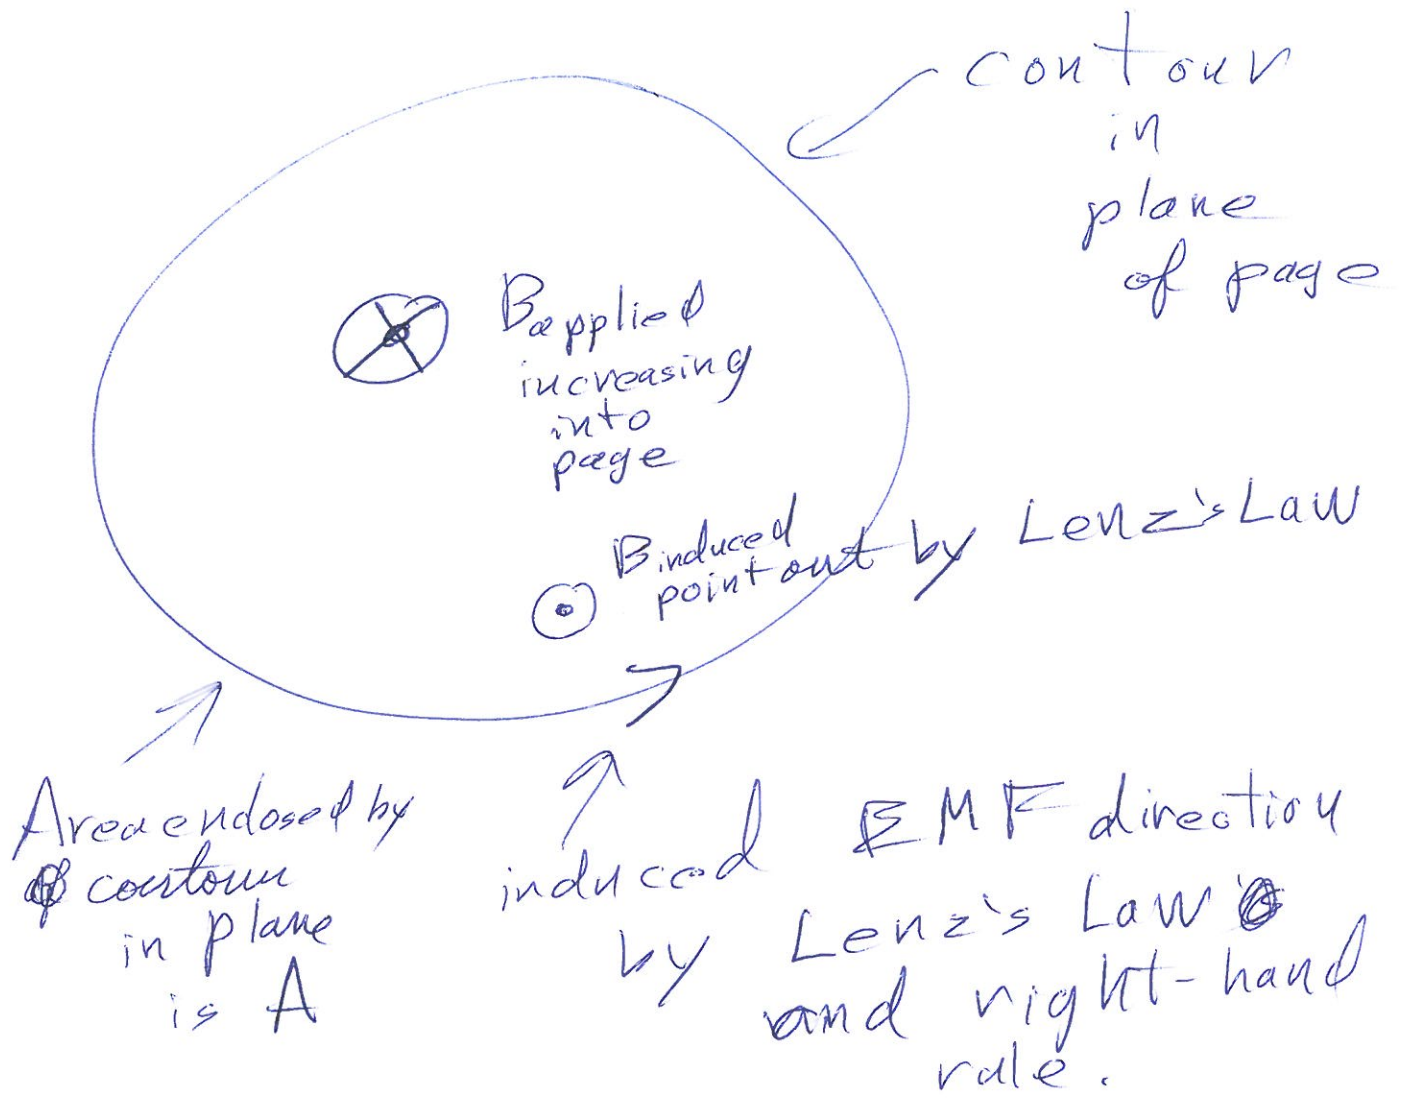 contour
in
plane
of page
Bapplied
increasing
into
page
Binduced
point out by Lenz's Law
Area enclosed by
contour
in plane
is A
induced EMF direction
by Lenz's Law
and right-hand
rule.